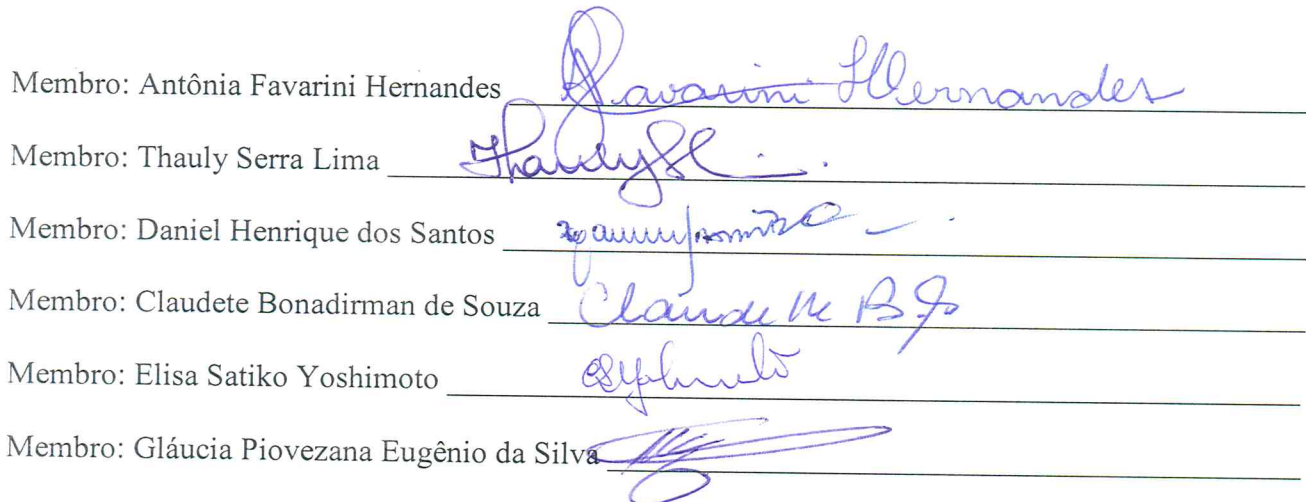 Membro: Antônia Favarini Hernandes Favarini Hernandes
Membro: Thauly Serra Lima Thauly
Membro: Daniel Henrique dos Santos
Membro: Claudete Bonadirman de Souza
Membro: Elisa Satiko Yoshimoto
Membro: Gláucia Piovezana Eugênio da Silva